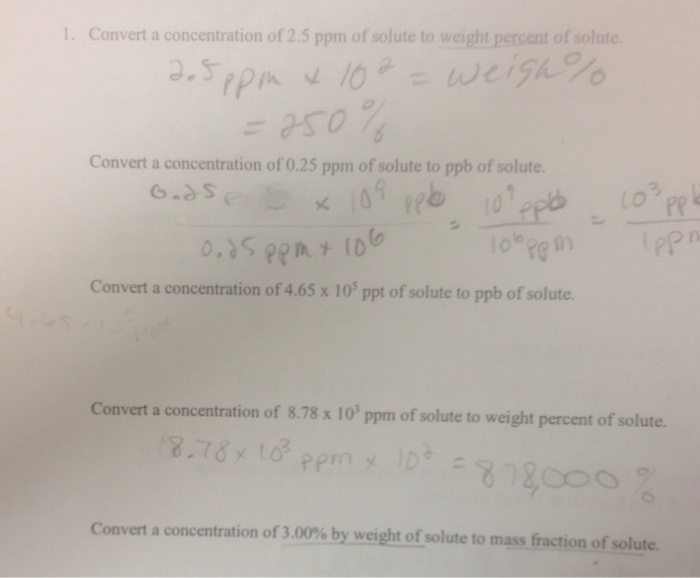 1. Convert a concentration of 2.5 ppm of solute to weight percent of solute.
2.5 ppm x 10² = weigh%
= 250%
Convert a concentration of 0.25 ppm of solute to ppb of solute.
0.25 x 10⁹ ppb / 0.25 ppm x 10⁶ = 10⁹ ppb / 10⁶ ppm = 10³ pp / 1pp
Convert a concentration of 4.65 x 10⁵ ppt of solute to ppb of solute.
4.65
Convert a concentration of 8.78 x 10³ ppm of solute to weight percent of solute.
8.78 x 10³ ppm x 10² = 878,000 %
Convert a concentration of 3.00% by weight of solute to mass fraction of solute.